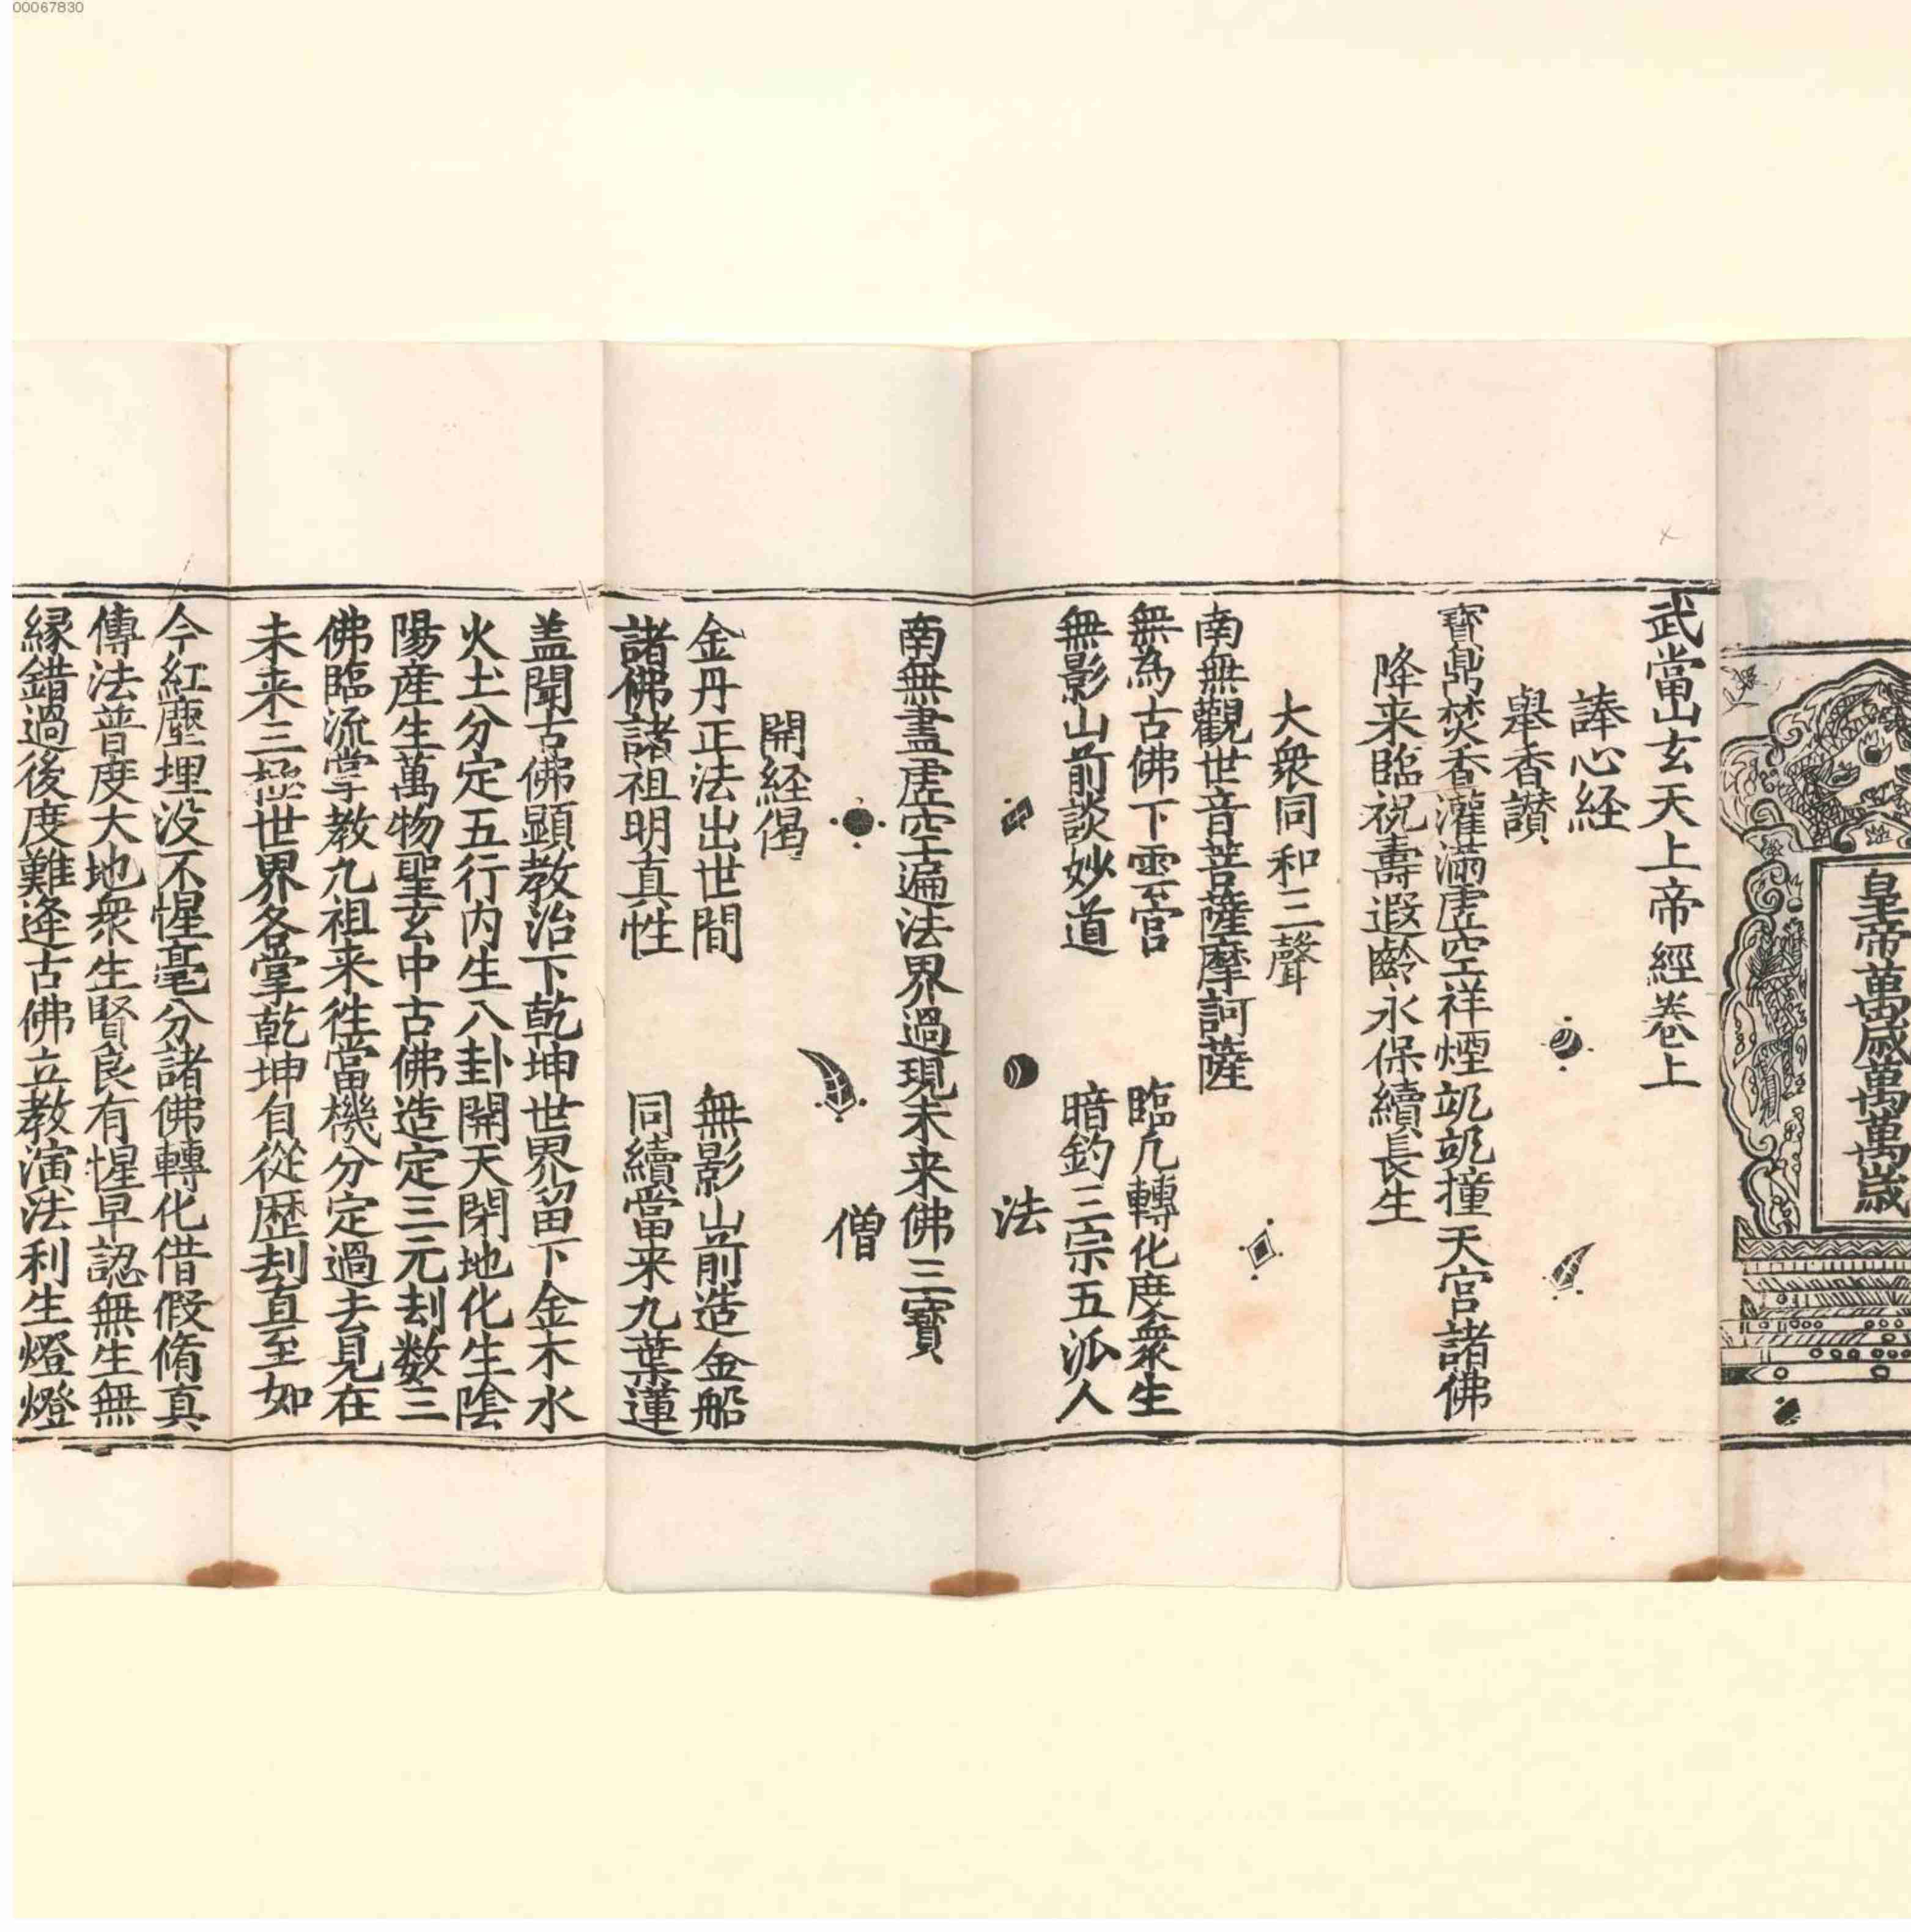 00067830
皇帝萬歲萬萬歲
武當山玄天上帝經卷上
諱心経
舉香讃
寳鼎焚香灌滿虛空祥煙𥩟𥩟撞天宮諸佛
降来臨祝壽遐齡永保續長生
大衆同和三聲
南無觀世音菩薩摩訶薩
無為古佛下雲宮 臨凢轉化度衆生
無影山前談妙道 暗釣三宗五派人
法
南無盡虛空遍法界過現未来佛三寳
僧
開経偈
金丹正法出世間 無影山前造金船
諸佛諸祖明真性 同續當来九葉蓮
盖聞古佛顕教治下乾坤世界留下金木水
火土分定五行内生八卦開天閉地化生陰
陽産生萬物聖玄中古佛造定三元刦数三
佛臨流掌教九祖来徃當機分定過去見在
未来三極世界各掌乾坤自從歴刦直至如
今紅塵埋没不惺毫分諸佛轉化借假脩真
傳法普度大地衆生賢良有惺早認無生無
縁錯過後度難逢古佛立教演法利生燈燈